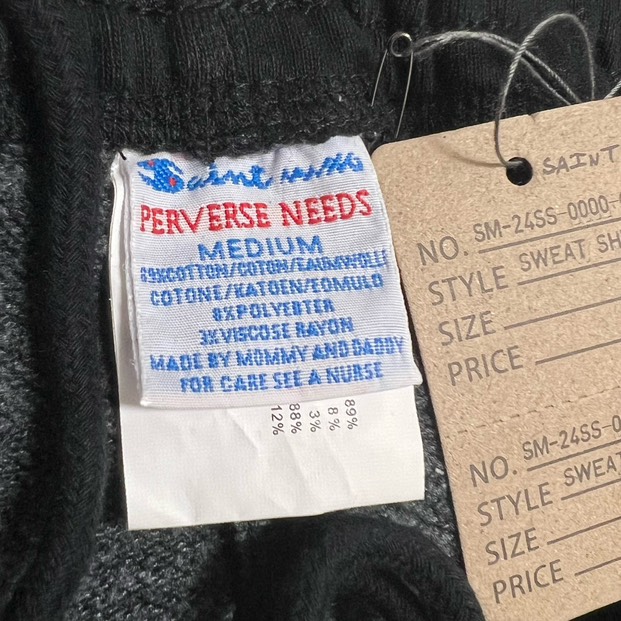 Saint Mxxxxxx
PERVERSE NEEDS
MEDIUM
89%COTTON/COTON/BAUMWOLLE
COTONE/KATOEN/EOMULO
8%POLYESTER
3%VISCOSE RAYON
MADE BY MOMMY AND DADDY
FOR CARE SEE A NURSE
89%
8%
3%
88%
12%
SAINT
NO. SM-24SS-0000-
STYLE SWEAT SH
SIZE
PRICE
NO. SM-24SS-0
STYLE SWEAT
SIZE
PRICE